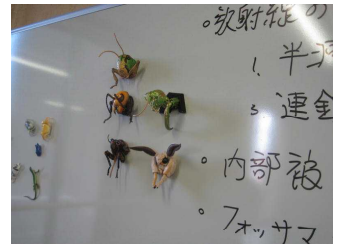 。放射線の
1. 半
3. 連金
。内部被
。フォッサマ